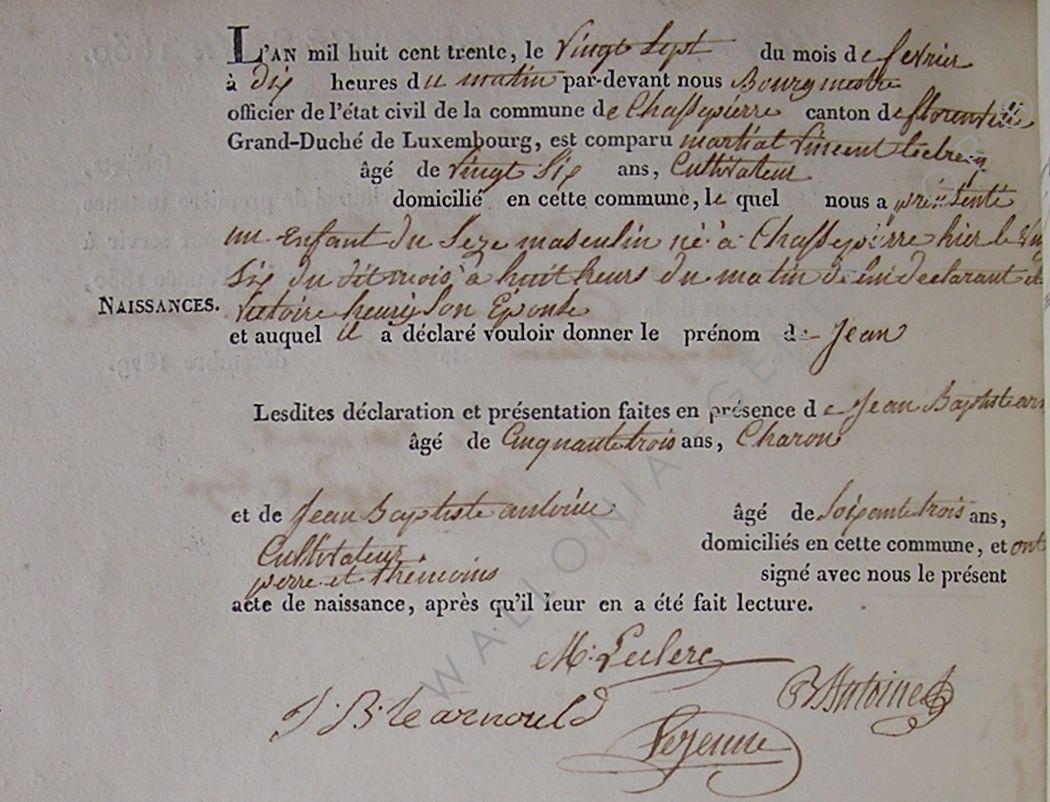 L'AN mil huit cent trente, le vingt sept du mois de fevrier
à dix heures du matin par-devant nous Bourgmestre
officier de l'état civil de la commune de Chassepierre canton de florenville
Grand-Duché de Luxembourg, est comparu martial vincent leclerc
âgé de vingt six ans, Cultivateur
domicilié en cette commune, le quel nous a présenté
un enfant du sexe masculin né à Chassepierre hier le
six du dit mois à huit heurs du matin de lui declarant et
NAISSANCES. victoire henry son Epouse
et auquel il a déclaré vouloir donner le prénom de Jean
Lesdites déclaration et présentation faites en présence de Jean Baptiste
âgé de Cinquante trois ans, Charon
et de Jean Baptiste antoine âgé de soixante trois ans,
Cultivateur domiciliés en cette commune, et ont
perre et themoins signé avec nous le présent
acte de naissance, après qu'il leur en a été fait lecture.
M. Leclerc
Antoine
J. B. Le arnould
Lejeune
WALLONIA GEN